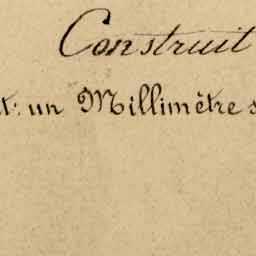 Construit
t: un Millimètre s